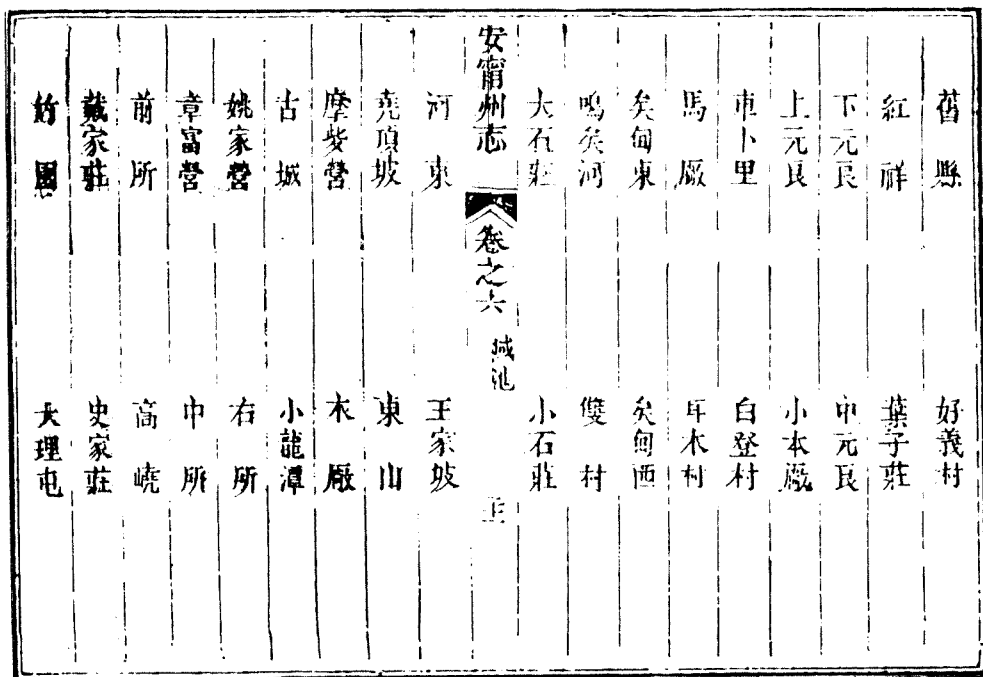 舊縣　好義村
紅祥　葉子莊
下元良　中元良
上元良　小木廠
車卜里　白登村
馬廠　耳木村
矣甸東　矣甸西
鳴矣河　雙村
大石莊　小石莊
安甯州志　卷之六　城池
河東　王家坡
堯頂坡　東山
摩柴營　木廠
古城　小龍潭
姚家營　右所
章富營　中所
前所　高嶢
戴家莊　史家莊
竹園　大理屯